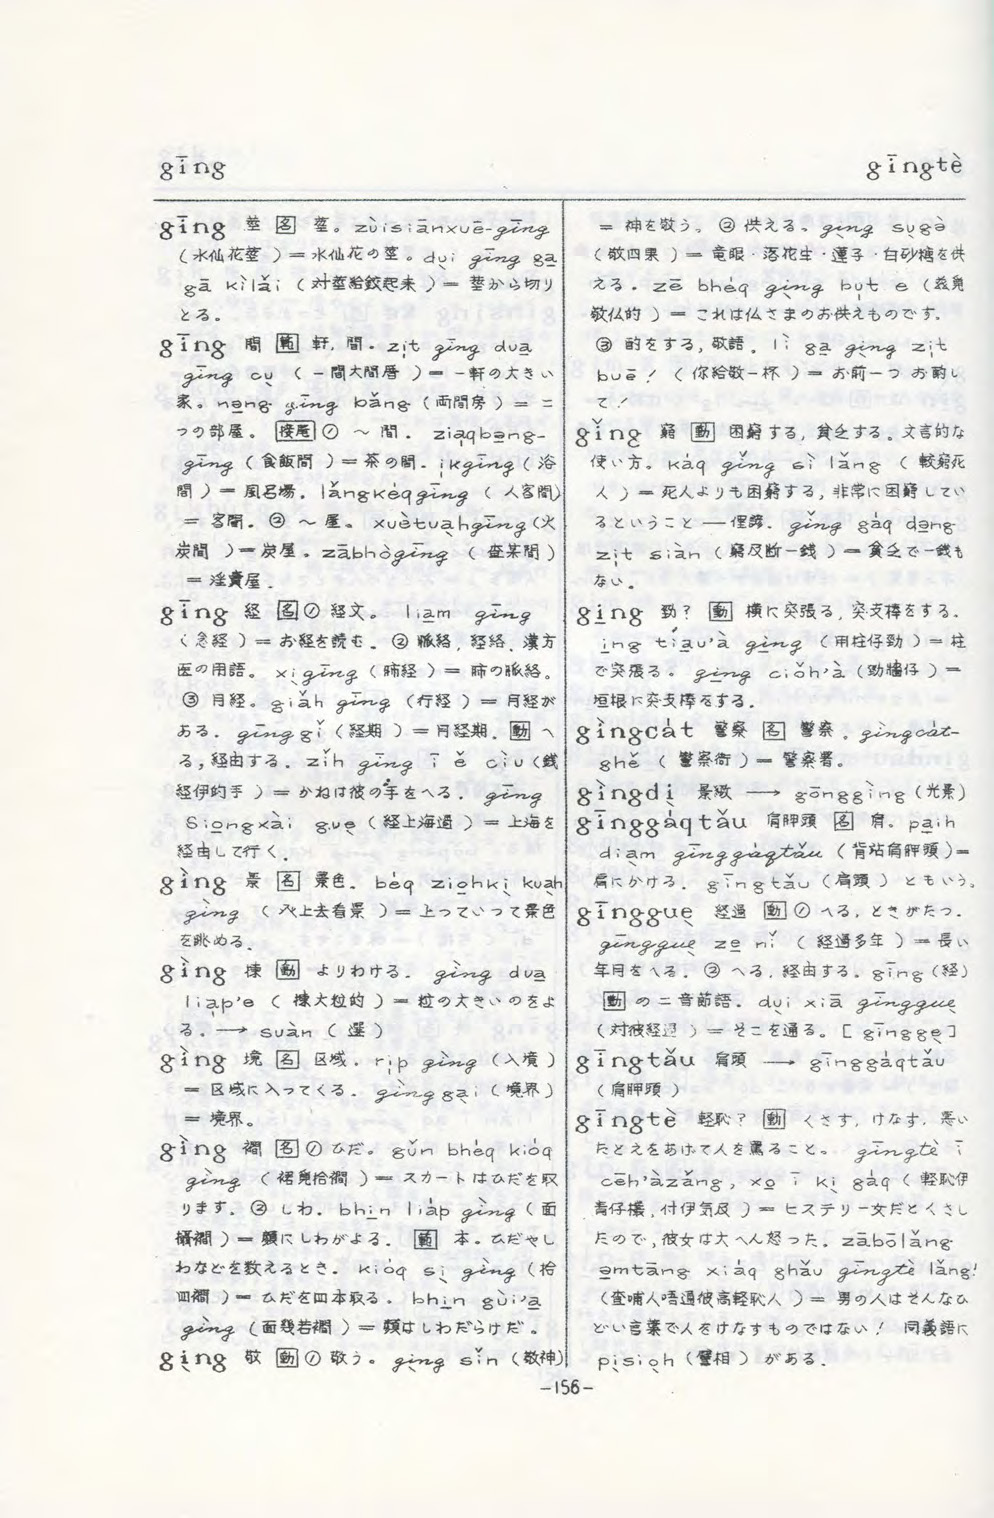 gīng
gīngtè
gīng 莖 名 莖。zùisiānxuē-gīng
(水仙花莖)=水仙花の莖。dụi gīng ga̱
gā kı̀lǎi (対莖給鉸起来)= 莖から切り
とる。
gīng 間 範 軒, 間. zi̍t gīng dua̱
gīng cụ (一間大間厝)= 一軒の大きい
家。nəng gīng bǎng (両間房) = 二
つの部屋。接尾① ~ 間. ziaqbəng-
gīng (食飯間)= 茶の間. i̍kgīng (浴
間)= 風呂場. lǎngkéqgīng ( 人客間)
= 客間. ② ~ 屋. xuètua̱hgīng (火
炭間 )= 炭屋。zābhògīng (査某間)
= 淫売屋.
gīng 経 名① 経文。liạm gīng
(念経)= お経を読む. ② 脈絡, 経絡. 漢方
医の用語。xịgīng (肺経)= 肺の脈絡。
③ 月経. giǎh gīng (行経)= 月経が
ある. gīnggǐ (経期)= 月経期. 動 へ
る, 経由する. zı̌h gīng ī ě cìu (銭
経伊的手)= かねは彼の手をへる. gīng
Siongxài guẹ (経上海過)= 上海を
経由して行く.
gìng 景 名 景色. béq ziọhkị kuạh
gìng ( 欲上去看景 )= 上っていって景色
を眺める.
gìng 揀 動 よりわける. gìng dua̱
lia̍p'e ( 揀大粒的 )= 粒の大きいのをよ
る. → suàn (選)
gìng 境 名 区域. ri̍p gìng (入境)
= 区域に入ってくる. gìnggại (境界)
= 境界。
gìng 襉 名① ひだ。gǔn bhéq kióq
gìng (裙覓拾襉)= スカートはひだを取
ります. ② しわ. bhi̱n liáp gìng (面
攝襉)= 顔にしわがよる. 範 本. ひだやし
わなどを数えるとき. kióq sị gìng (拾
四襉)= ひだを四本取る. bhi̱n gùi'a̱
gìng (面幾若襉)= 顔はしわだらけだ。
gịng 敬 動① 敬う. gịng sǐn (敬神)
= 神を敬う。② 供える. gịng sụgò
(敬四果)= 竜眼・落花生・蓮子・白砂糖を供
える. zē bhéq gịng bu̍t e (玆覓
敬仏的)= これは仏さまのお供えものです。
③ 酌をする, 敬語。lì ga̱ gịng zi̍t
buē! (你給敬一杯)= お前一つお酌し
て!
gǐng 窮 動 困窮する, 貧乏する. 文言的な
使い方。káq gǐng sì lǎng (較窮死
人)= 死人よりも困窮する, 非常に困窮してい
るということ ― 俚諺. gǐng gáq dəng
zi̍t siàn (窮及断一銭)= 貧乏で一銭も
ない。
gi̱ng 勁? 動 横に突張る, 突支棒をする.
i̱ng tiau'à gi̱ng (用柱仔勁)= 柱
で突張る. gi̱ng ciǒh'à (勁牆仔)=
垣根に突支棒をする.
gìngcát 警察 名 警察. gìngcát-
ghě (警察衙)= 警察署。
gìngdị 景緻 → gōnggìng (光景)
gīnggáqtǎu 肩胛頭 名 肩. pạih
diạm gīnggáqtǎu (背站肩胛頭)=
肩にかける. gīngtǎu (肩頭)ともいう。
gīngguẹ 経過 動① へる, ときがたつ.
gīngguẹ ze nǐ (経過多年)= 長い
年月をへる. ② へる, 経由する. gīng (経)
動 の二音節語. dụi xiā gīngguẹ
(対彼経過)= そこを通る. [gīnggẹ]
gīngtǎu 肩頭 → gīnggáqtǎu
(肩胛頭)
gīngtè 軽恥? 動 くさす, けなす. 悪い
たとえをあげて人を罵ること。gīngtè ī
cēh'àzǎng, xọ ī kị gáq (軽恥伊
青仔欉, 付伊気及)= ヒステリー女だとくさし
たので, 彼女は大へん怒った. zābōlǎng
əmtāng xiáq ghǎu gīngtè lǎng!
(査哺人唔通彼高軽恥人)= 男の人はそんなひ
どい言葉で人をけなすものではない! 同義語に
pịsiọh (譬相)がある.
-156-